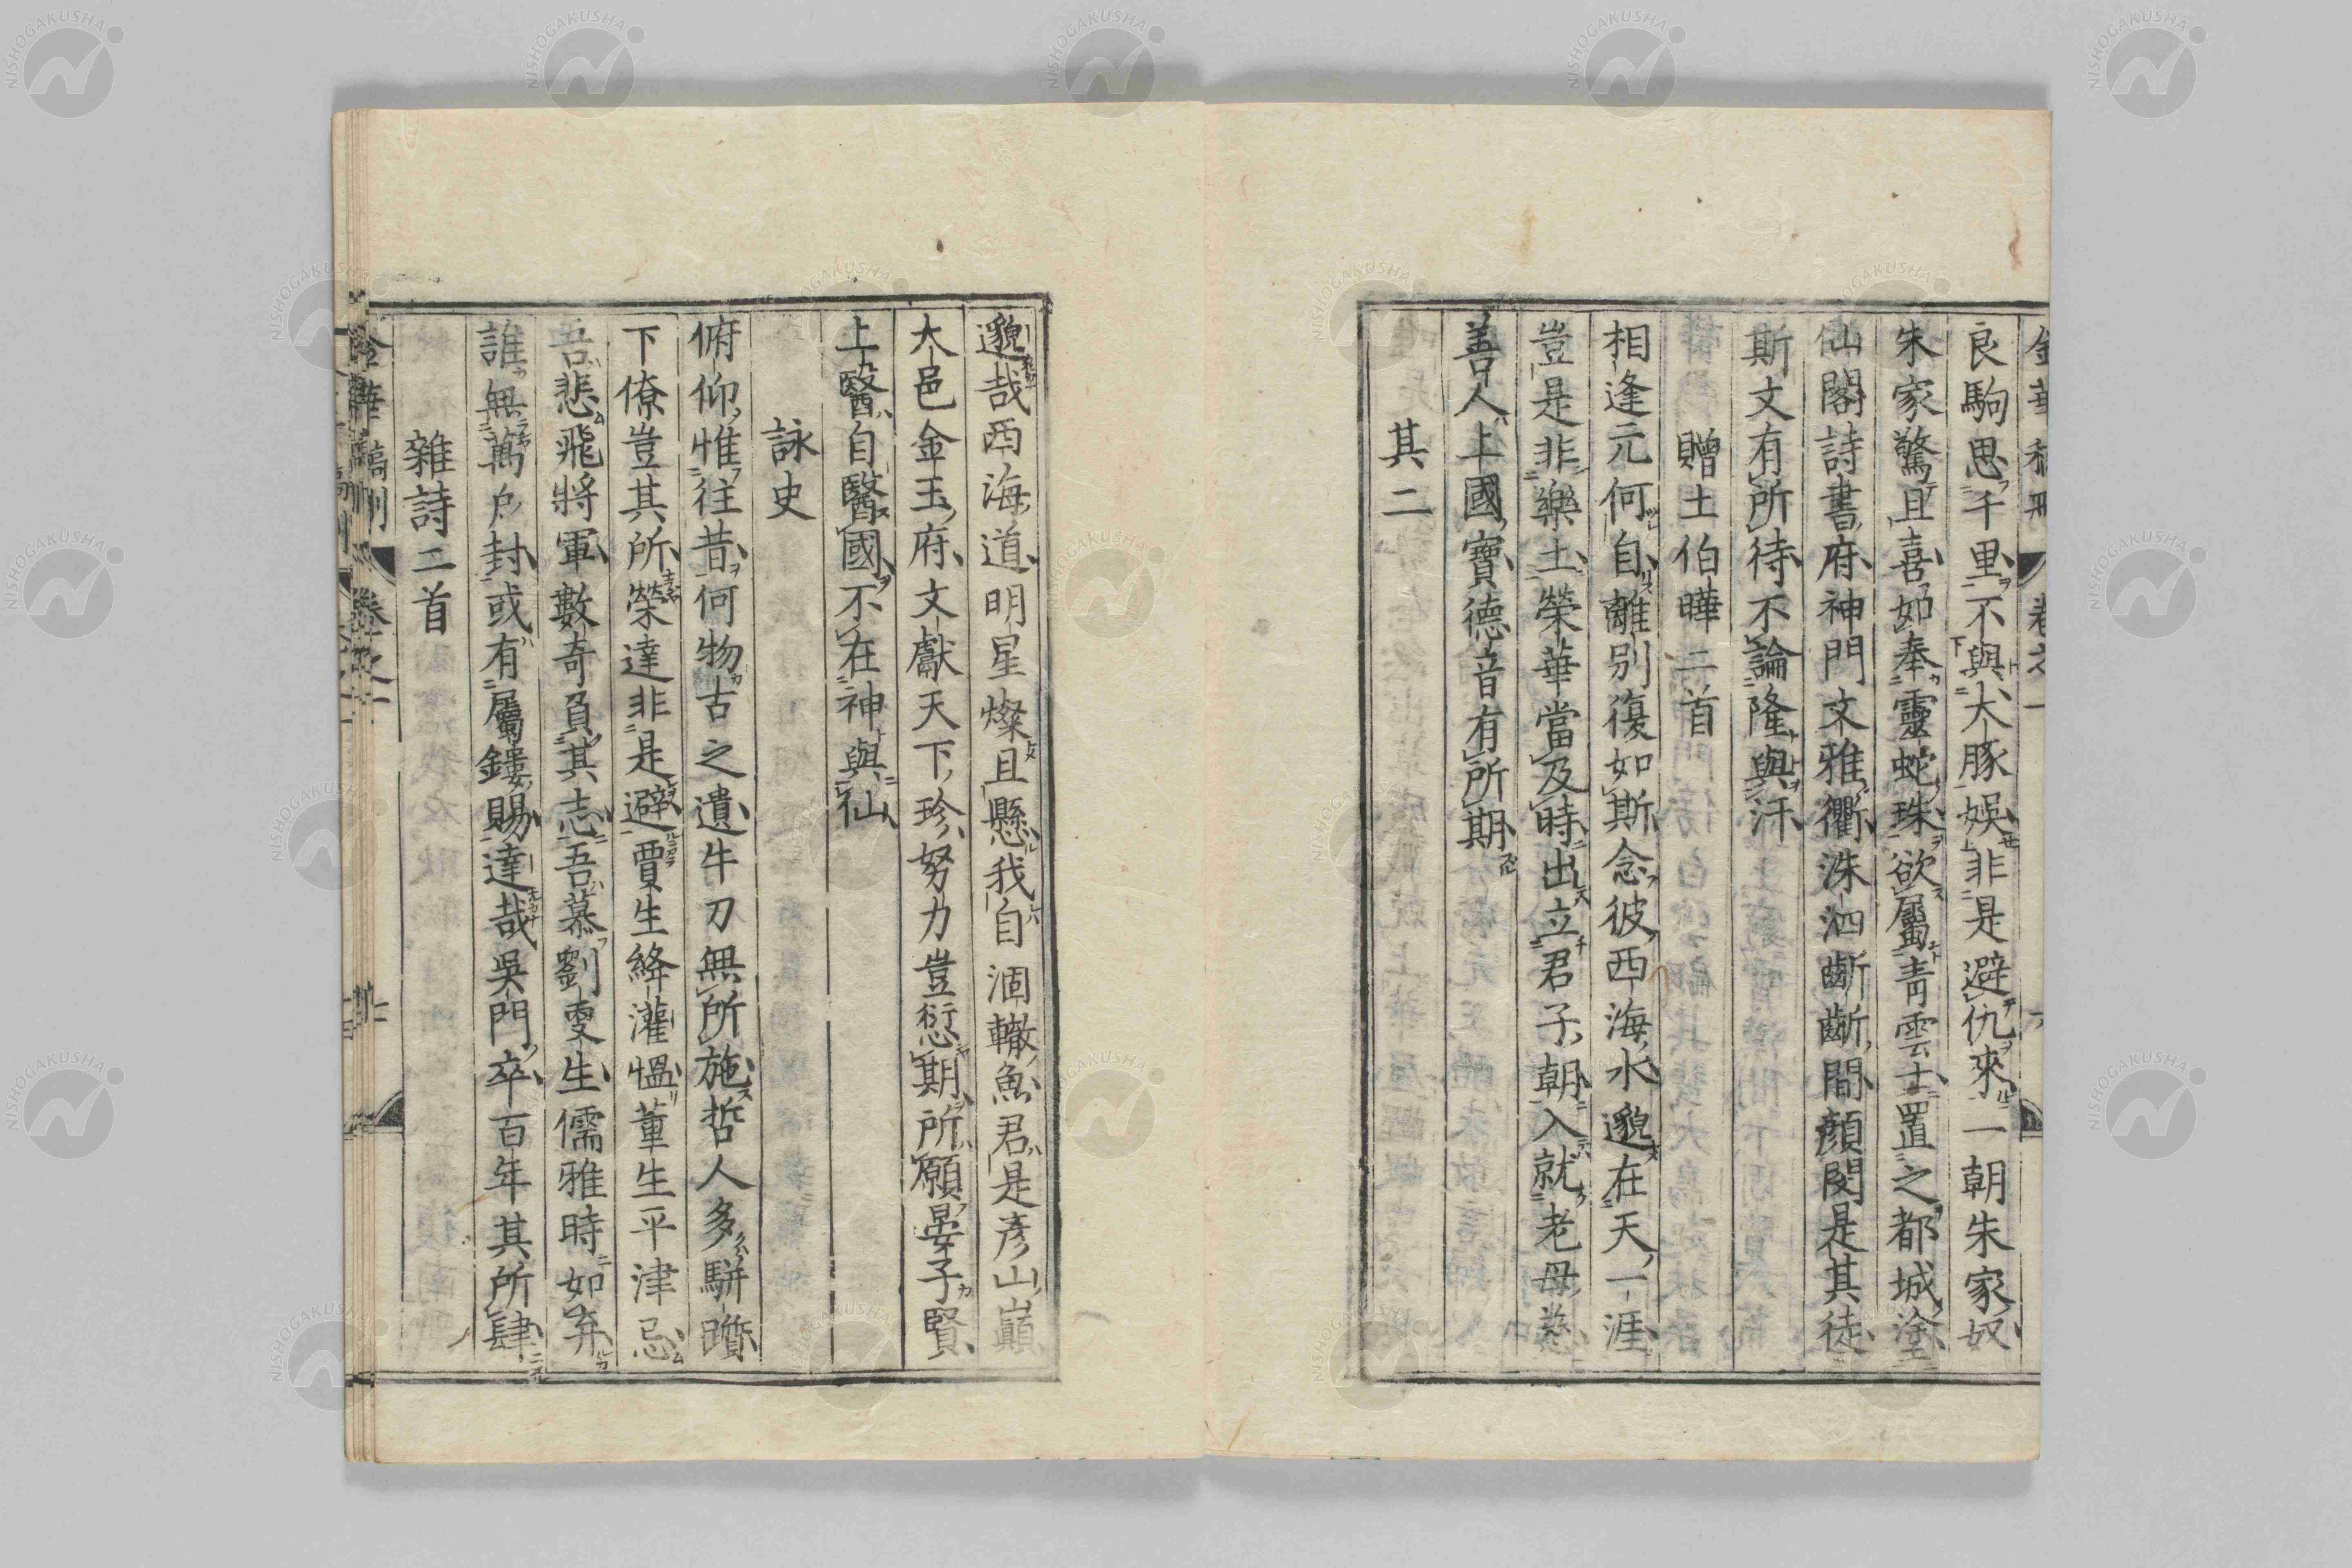 良駒思千里不與大豚娛非是避仇來一朝朱家奴
朱家驚且喜如奉靈蛇珠欲屬青雲士置之都城塗
仙閣詩書府神門文雅衢洙泗齗齗間顏閔是其徒
斯文有所待不論隆與汙
贈土伯曄二首
相逢元何自離別復如斯念彼西海水邈在天一涯
豈是非樂土榮華當及時出立君子朝入就老母慈
善人上國寶德音有所期
其二
邈哉西海道明星燦且懸我自涸轍魚君是彥山巔
大邑金玉府文獻天下珍努力豈愆期所願晏子賢
上醫自醫國不在神與仙
詠史
俯仰惟往昔何物古之遺牛刀無所施哲人多駢躓
下僚豈其所榮達非是避賈生絳灌慍董生平津忌
吾悲飛將軍數奇負其志吾慕劉更生儒雅時如弃
誰無萬戶封或有屬鏤賜達哉吳門卒百年其所肆
雜詩二首
金華稿刪 卷之一